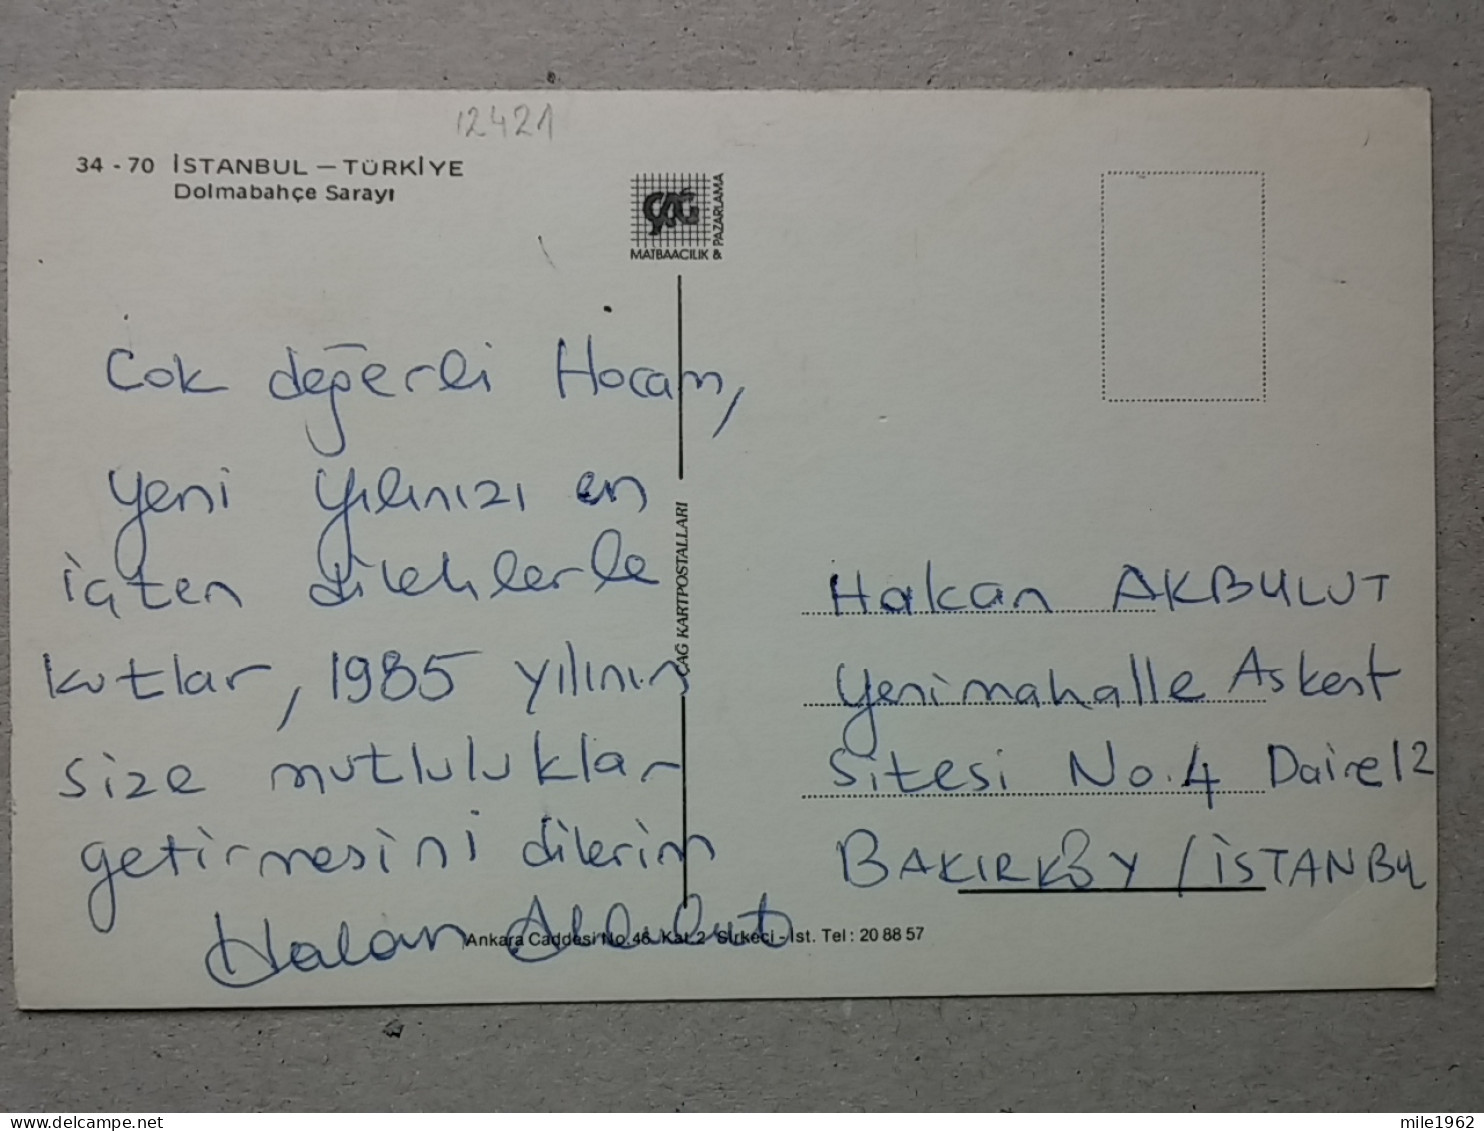 12421
34 - 70 İSTANBUL – TÜRKİYE
Dolmabahçe Sarayı
ÇAĞ
MATBAACILIK &
PAZARLAMA
Cok değerli Hocam,
yeni yılınızı en
içten dileklerle
kutlar, 1985 yılının
size mutluluklar
getirmesini dilerim
Hakan Akbulut
ÇAĞ KARTPOSTALLARI
Hakan AKBULUT
Yenimahalle Askent
Sitesi No.4 Daire 12
BAKIRKÖY / İSTANBUL
Ankara Caddesi No. 46 Kat 2 Sirkeci - İst. Tel : 20 88 57
mile1962